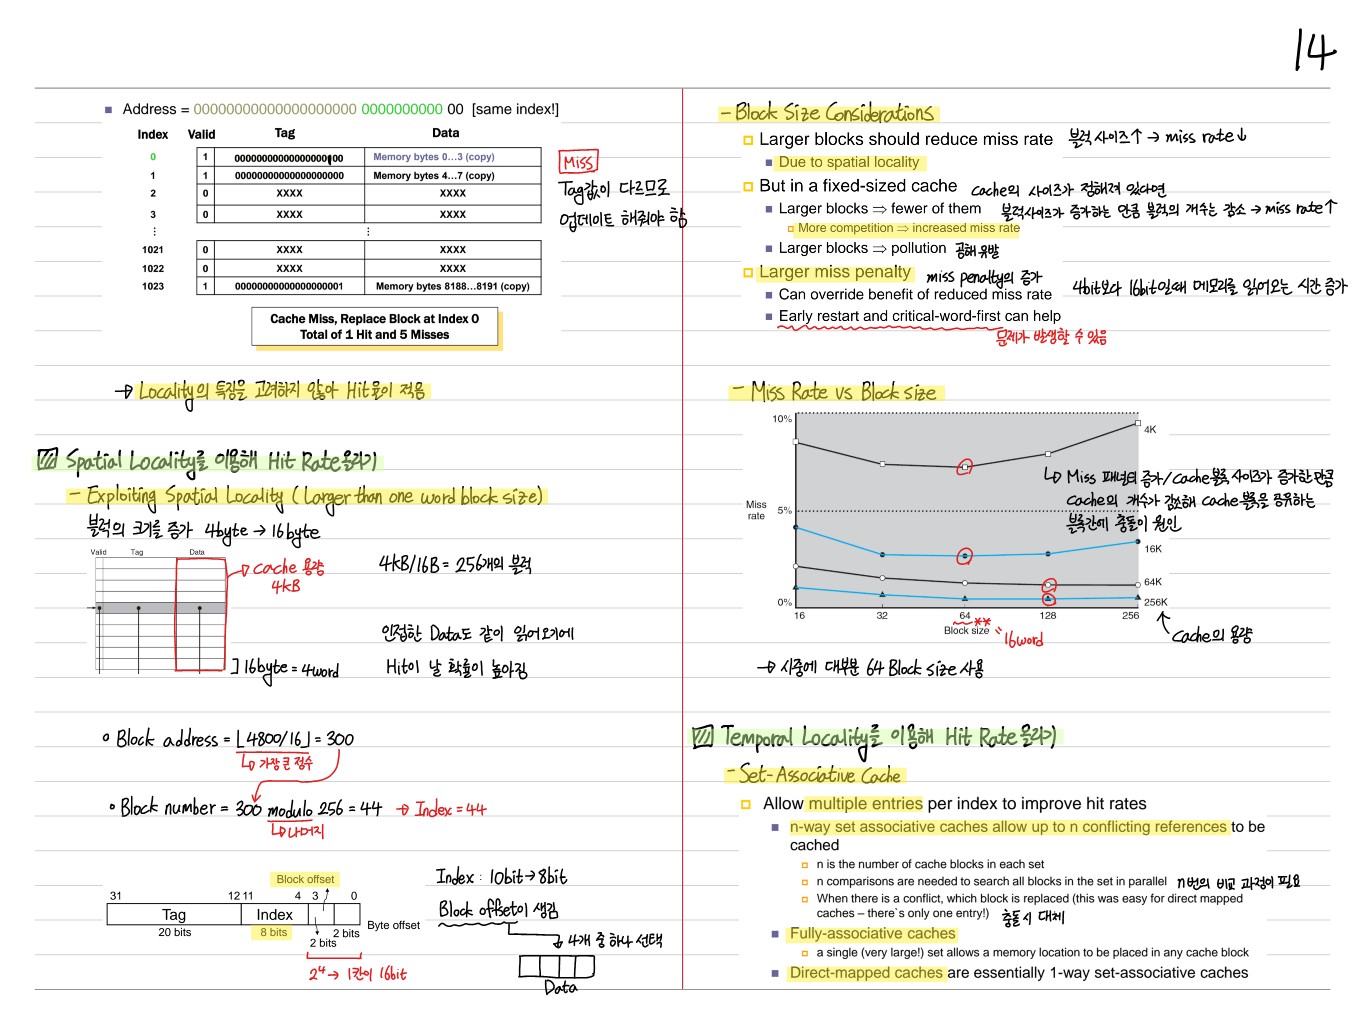 14
Address = 00000000000000000000 0000000000 00 [same index!]
Index Valid Tag Data
0 1 00000000000000000100 Memory bytes 0…3 (copy)
1 1 00000000000000000000 Memory bytes 4…7 (copy)
2 0 XXXX XXXX
3 0 XXXX XXXX
⋮ ⋮
1021 0 XXXX XXXX
1022 0 XXXX XXXX
1023 1 00000000000000000001 Memory bytes 8188…8191 (copy)
Miss
Tag값이 다르므로
업데이트 해줘야 함
Cache Miss, Replace Block at Index 0
Total of 1 Hit and 5 Misses
→ Locality의 특징을 고려하지 않아 Hit율이 적음
Spatial Locality를 이용해 Hit Rate올리기
- Exploiting Spatial Locality (Larger than one word block size)
블럭의 크기를 증가 4byte → 16byte
Valid Tag Data
→ cache 용량
4kB
4kB/16B = 256개의 블럭
인접한 Data도 같이 읽어오기에
Hit이 날 확률이 높아짐
16byte = 4word
Block address = ⌊4800/16⌋ = 300
↳ 가장 큰 정수
Block number = 300 modulo 256 = 44 → Index = 44
↳ 나머지
Block offset
31 12 11 4 3 0
Tag Index Byte offset
20 bits 8 bits 2 bits 2 bits
2⁴ → 1칸이 16bit
Index : 10bit → 8bit
Block offset이 생김
4개 중 하나 선택
Data
- Block Size Considerations
Larger blocks should reduce miss rate 블럭 사이즈↑ → miss rate↓
Due to spatial locality
But in a fixed-sized cache cache의 사이즈가 정해져 있다면
Larger blocks ⇒ fewer of them 블럭사이즈가 증가하는 만큼 블럭의 개수는 감소 → miss rate↑
More competition ⇒ increased miss rate
Larger blocks ⇒ pollution 공해 유발
Larger miss penalty miss penalty의 증가
Can override benefit of reduced miss rate 4bit보다 16bit일때 메모리를 읽어오는 시간 증가
Early restart and critical-word-first can help
문제가 발생할 수 있음
- Miss Rate vs Block size
10%
5%
0%
Miss
rate
4K
16K
64K
256K
↳ Miss 패널티 증가/cache블록 사이즈가 증가한만큼
cache의 개수가 감소해 cache블록을 공유하는
블록간에 충돌이 원인
16 32 64 128 256
Block size ** = 16word
cache의 용량
→ 시중에 대부분 64 Block size 사용
Temporal Locality를 이용해 Hit Rate 올리기
- Set-Associative Cache
Allow multiple entries per index to improve hit rates
n-way set associative caches allow up to n conflicting references to be
cached
n is the number of cache blocks in each set
n comparisons are needed to search all blocks in the set in parallel n번의 비교 과정이 필요
When there is a conflict, which block is replaced (this was easy for direct mapped
caches – there`s only one entry!) 충돌 시 대체
Fully-associative caches
a single (very large!) set allows a memory location to be placed in any cache block
Direct-mapped caches are essentially 1-way set-associative caches